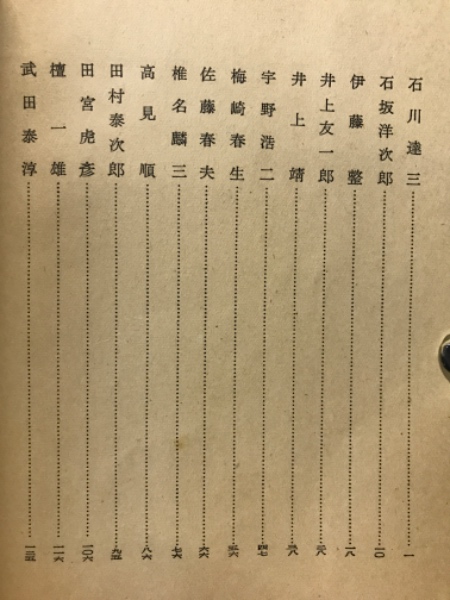 石川達三…………一
石坂洋次郎…………一〇
伊藤整…………一八
井上友一郎…………二八
井上靖…………三八
宇野浩二…………四七
梅崎春生…………五六
佐藤春夫…………六六
椎名麟三…………七六
高見順…………八六
田村泰次郎…………九五
田宮虎彦…………一〇六
檀一雄…………一一六
武田泰淳…………